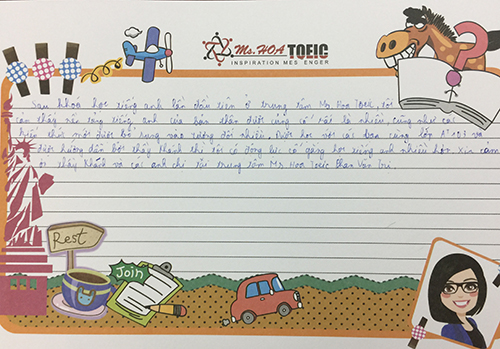 Ms. HOA TOEIC
INSPIRATION MES ENGER
Sau khóa học tiếng anh lần đầu tiên ở trung tâm Ms Hoa Toeic, tôi
cảm thấy nền tảng tiếng anh của bản thân được củng cố rất là nhiều, cũng như các
kiến thức mới được bổ sung vào tương đối nhiều. Được học với các bạn cùng lớp và
được hướng dẫn bởi thầy Khánh thì tôi có động lực cố gắng học tiếng anh nhiều hơn. Xin cảm
ơn thầy Khánh và các anh chị tại trung tâm Ms Hoa Toeic Phan Văn Trị.
Rest
Join